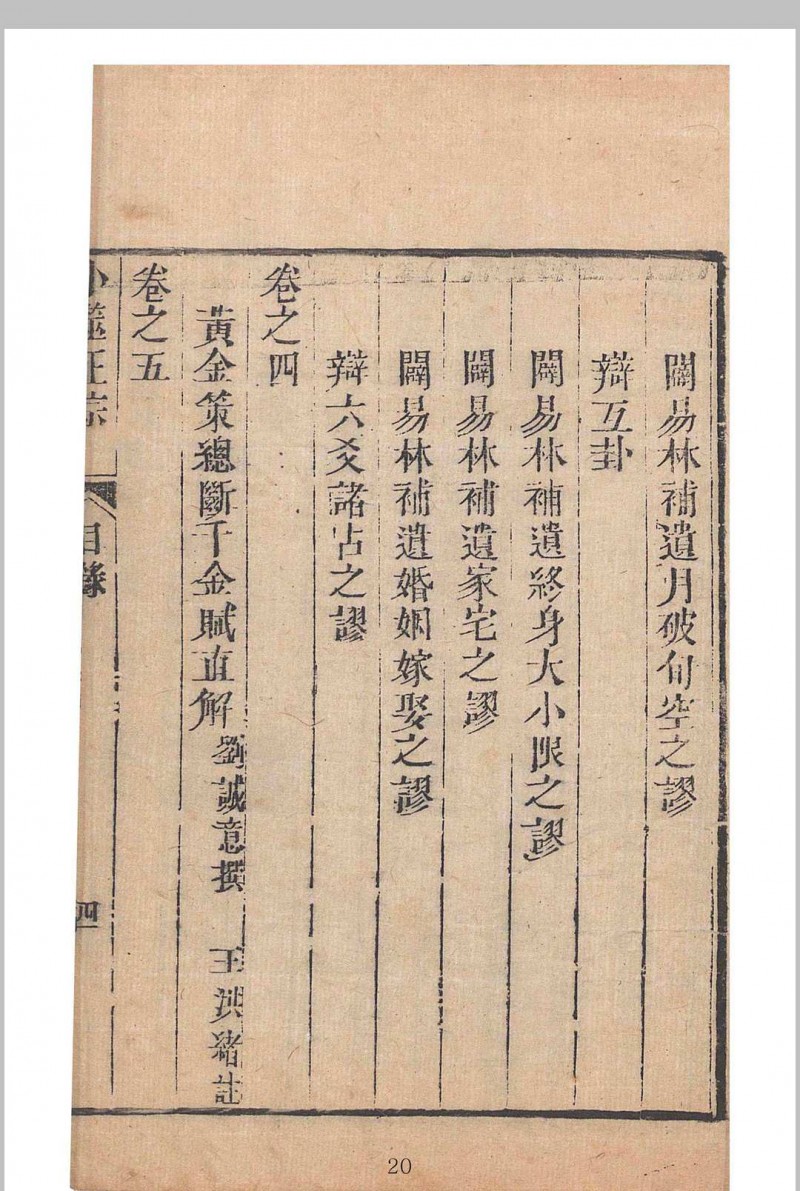 闢易林補遺月破旬空之謬
辯互卦
闢易林補遺終身大小限之謬
闢易林補遺家宅之謬
闢易林補遺婚姻嫁娶之謬
辯六爻諸占之謬
卷之四
黃金策總斷千金賦直解 劉誠意撰 王洪緒註
卷之五
卜筮正宗 目錄 四
20